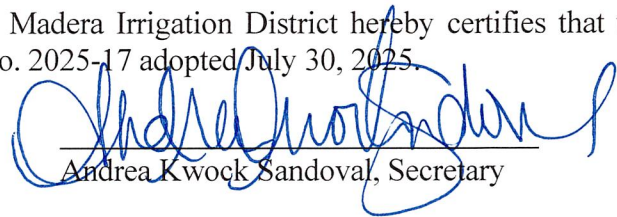 Madera Irrigation District hereby certifies that
o. 2025-17 adopted July 30, 2025.
Andrea Kwock Sandoval
Andrea Kwock Sandoval, Secretary